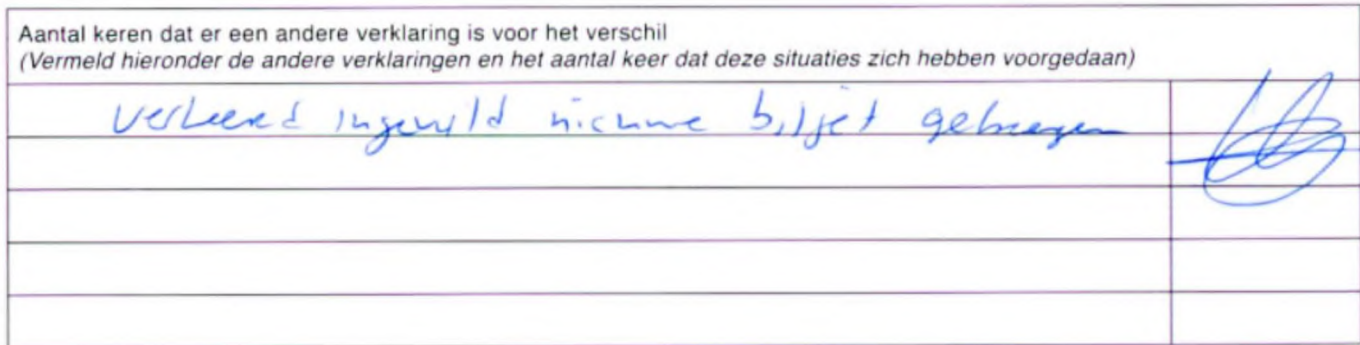 Aantal keren dat er een andere verklaring is voor het verschil
(Vermeld hieronder de andere verklaringen en het aantal keer dat deze situaties zich hebben voorgedaan)
verkeerd ingevuld nieuwe biljet gekregen